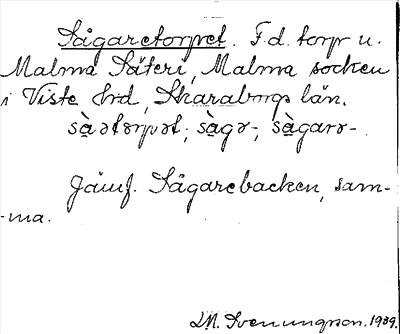 Sågaretorpet. F.d. torp u.
Malma Säteri, Malma socken
i Viste hrd, Skaraborgs län.
sàətorpət; sàgə-, sàgarə-.
Jämf. Sågarebacken, sam-
-ma.
M. Svenungson. 1939.